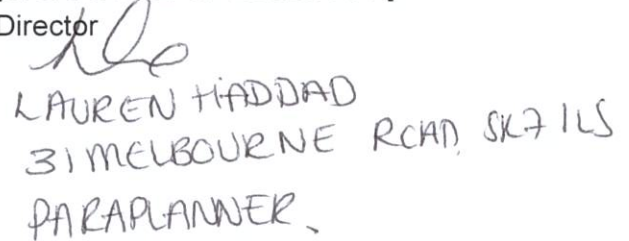 Director
LAUREN HADDAD
31 MELBOURNE ROAD, SK7 1LS
PARAPLANNER.